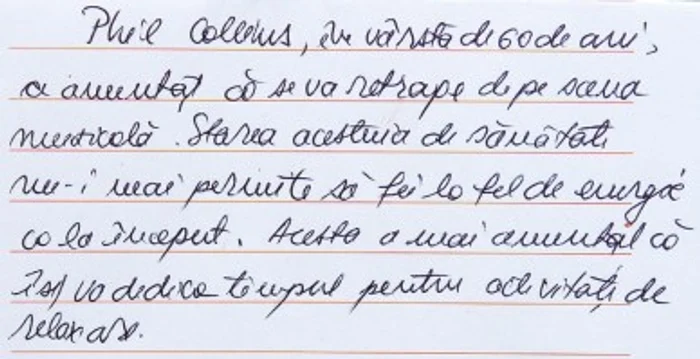 Phil Collins, în vârstă de 60 de ani,
a anunțat că se va retrage de pe scena
muzicală. Starea acestuia de sănătate
nu-i mai permite să fie la fel de energic
ca la început. Acesta a mai anunțat că
își va dedica timpul pentru activități de
relaxare.